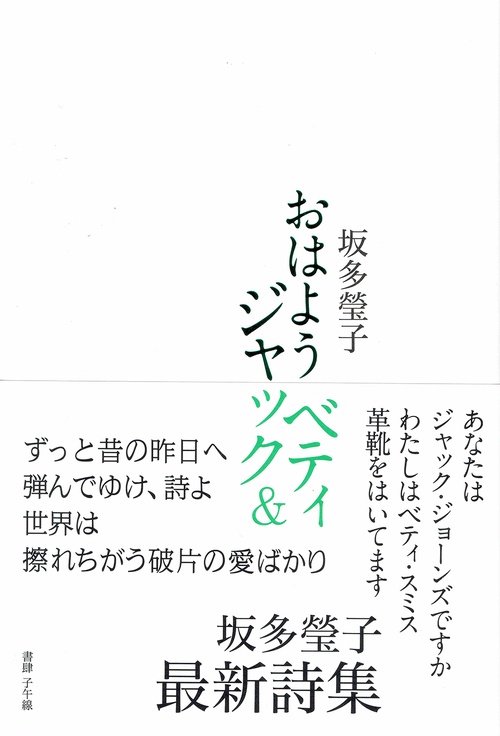 坂多瑩子
おはようベティ
ジャック&
あなたは
ジャック・ジョーンズですか
わたしはベティ・スミス
革靴をはいてます
ずっと昔の昨日へ
弾んでゆけ、詩よ
世界は
擦れちがう破片の愛ばかり
坂多瑩子
最新詩集
書肆 子午線